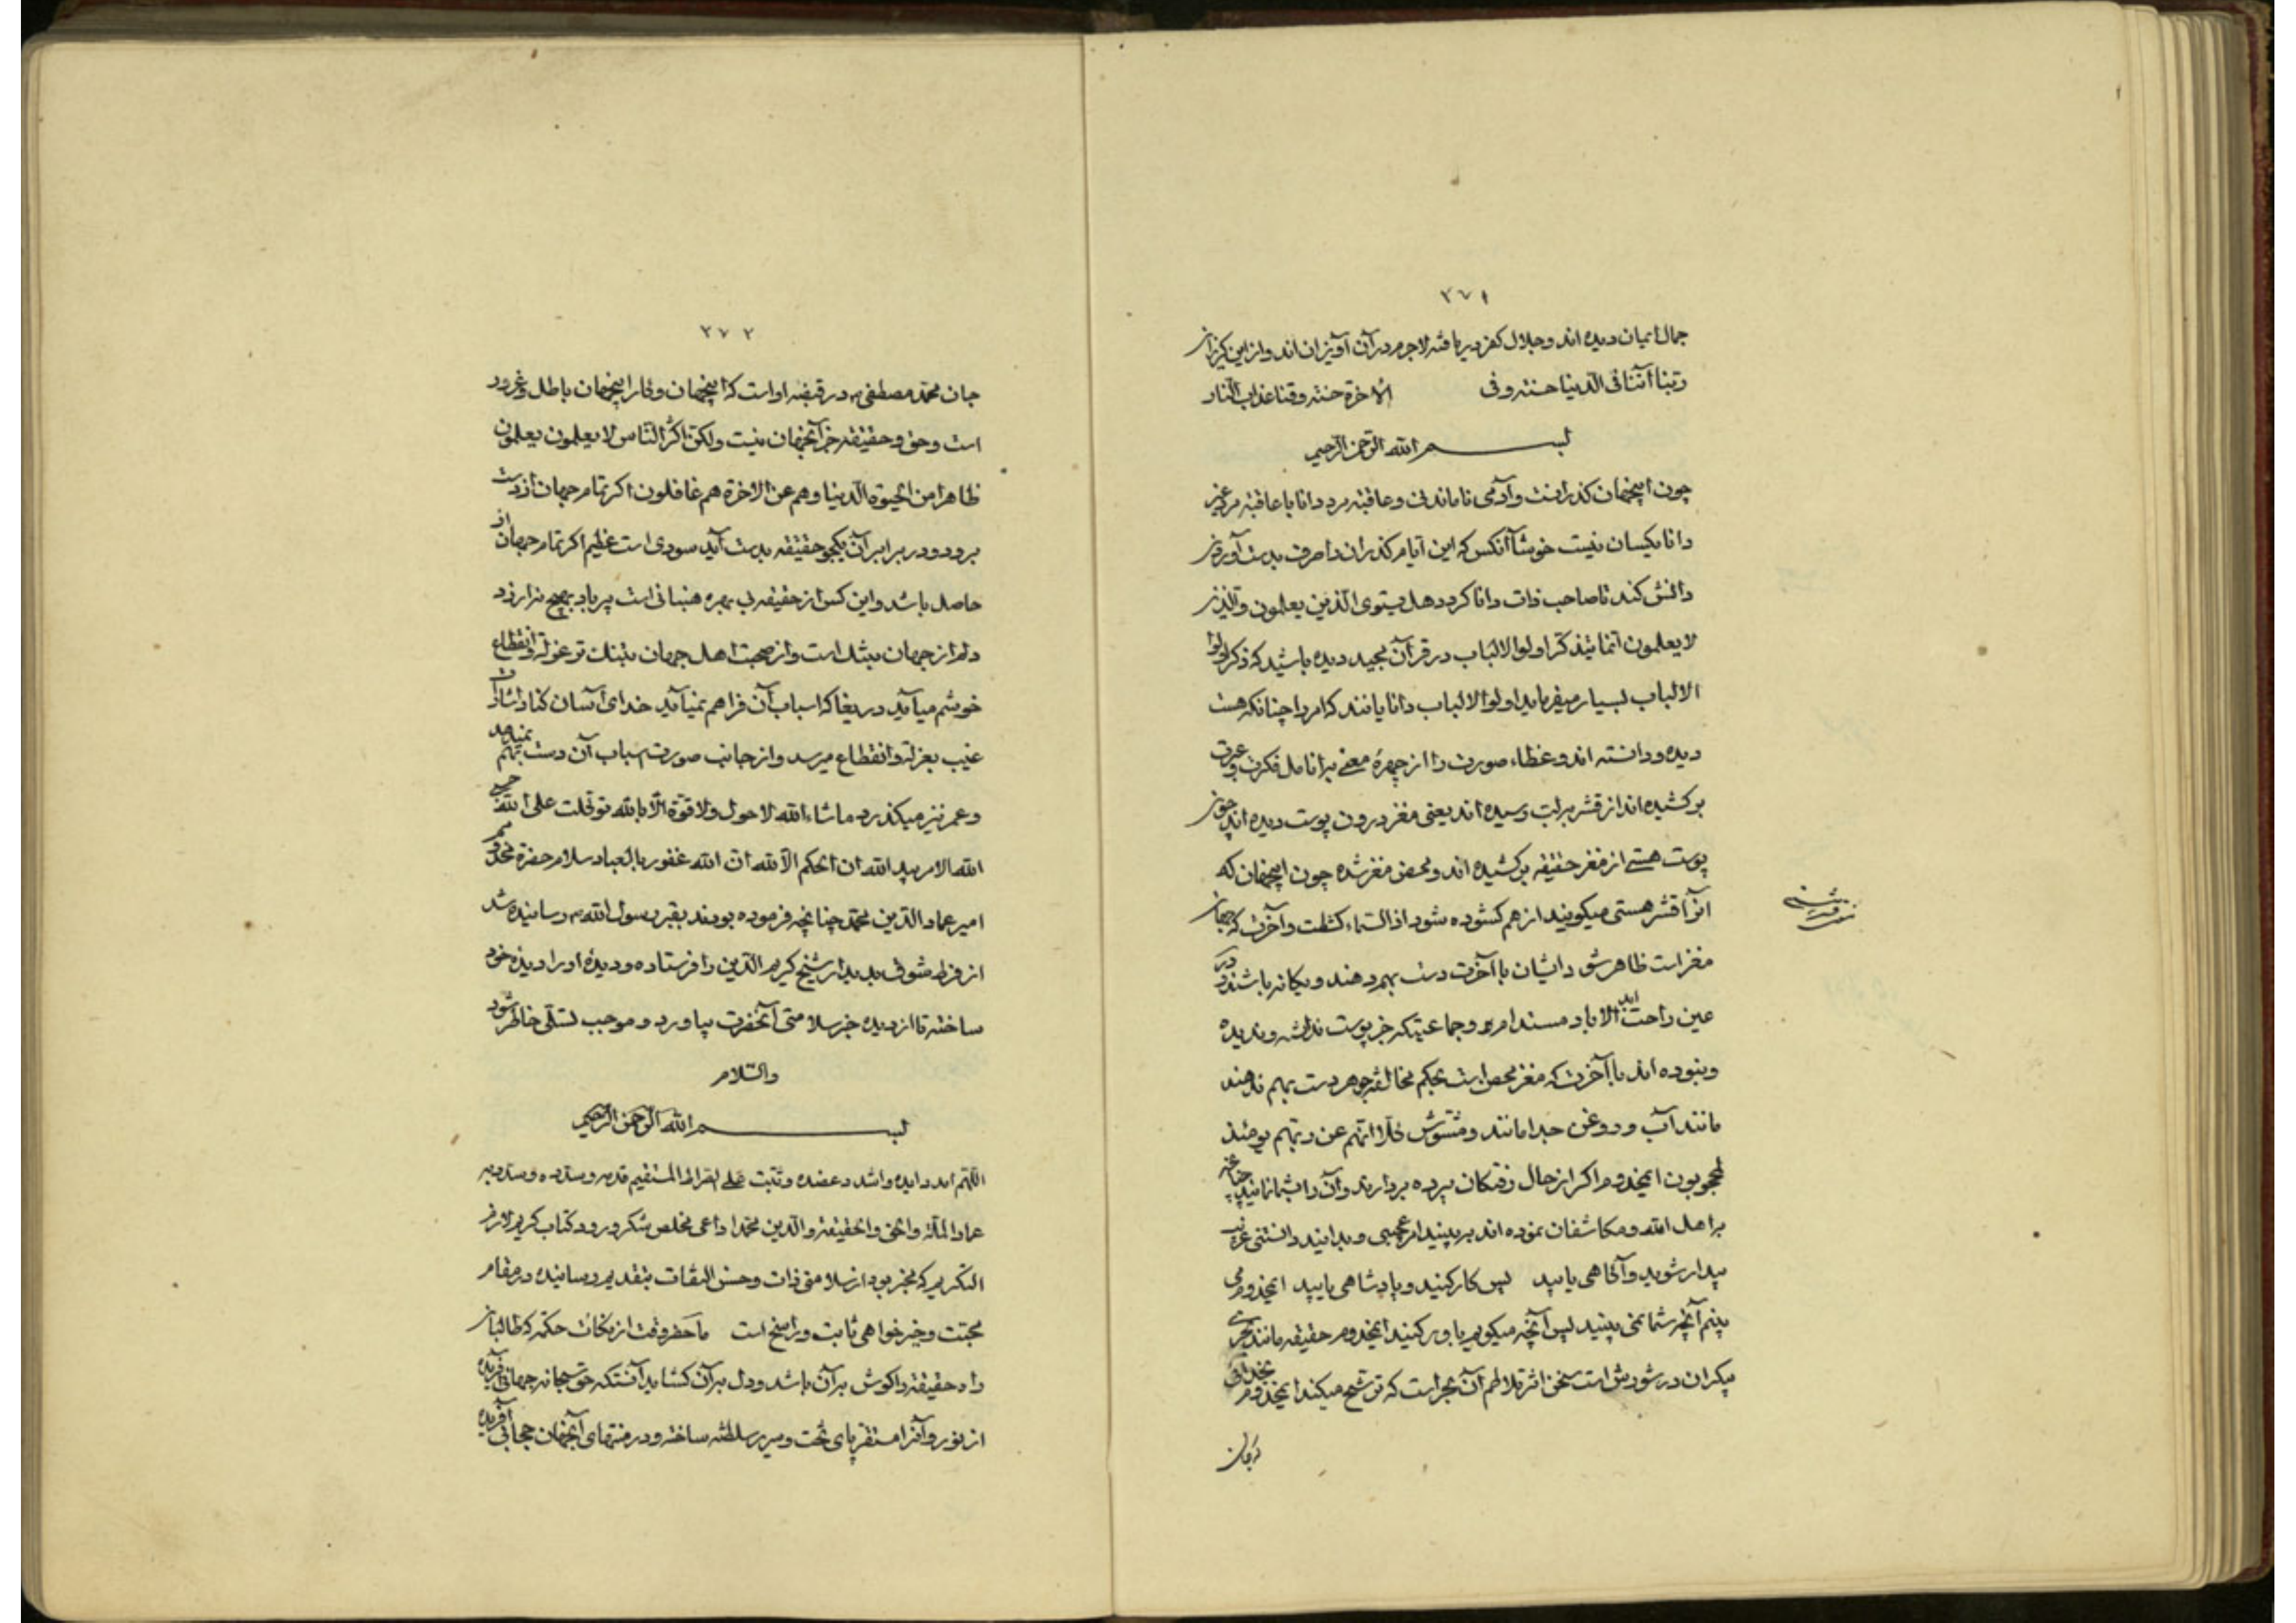 ۲۷۱
جمال ایمان دیده اند و جلال کفر دریافته لاجرم در آن آویزان اند و از این گریزان
ربنا آتنا فی الدنیا حسنه و فی الاخرة حسنه وقنا عذاب النار
بسم الله الرحمن الرحیم
چون اینجهان گذرانست و آدمی ناماندنی و عاقبة مرد دانا با عاقبة مرد غیر
دانا یکسان نیست خوشا آنکس که این ایام گذران را صرف بدست آوردن
دانش کند تا صاحب ذات دانا گردد هل یستوی الذین یعلمون والذین
لا یعلمون انما یتذکر اولوا الالباب در قرآن مجید دیده باشید که ذکر اولوا
الالباب بسیار میفرماید اولوا الالباب دانایانند که امر را چنانکه هست
دیده و دانسته اند و غطاء صورت را از چهرهٔ معنی بر انامل فکرت و عبرت
برکشیده اند از قشر بلب رسیده اند یعنی مغز درون پوست دیده اند چون
پوست هستی از مغز حقیقة برکشیده اند و محض مغز شده چون اینجهان که
آنرا قشر هستی میگویند از هم گشوده شود اذا السماء کشطت و آخرت که جهان
مغز است ظاهر شود ایشان با آخرت دست بهم دهند و یگانه باشند در
عین راحت ابد الاباد مستدام بود و جماعتیکه جز پوست ندانسته و ندیده
و نبوده اند با آخرت که مغز محض است بحکم مخالفة جوهر دست بهم ندهند
مانند آب و روغن جدا مانند و مشوش کلا انهم عن ربهم یومئذ
لمحجوبون ایمخدوم اگر از حال رفتگان پرده بردارند و آن را بشما نمایند چنانچه
بر اهل الله و مکاشفان نموده اند بر ببینید امر عجیبی و بدانید دانستنی غریب
بیدار شوید و آگاهی یابید پس کار کنید و پادشاهی یابید ایمخدوم من
بینم آنچه شما نمی بینید پس آنچه میگویم باور کنید ایمخدوم حقیقة مانند بحری
بیکران در شورش است سخن اثر تلاطم آن بحر است که ترشح میکند ایمخدوم بخدائی
که جان
۲۷۲
جان محمد مصطفی ص در قبضه او است که اینجهان و کار اینجهان باطل و غرور
است و حق و حقیقة جز آنجهان نیست ولکن اکثر الناس لا یعلمون یعلمون
ظاهرا من الحیوة الدنیا وهم عن الاخرة هم غافلون اگر تمام جهان از دست
برود و در برابر آن یکجو حقیقة بدست آید سودی است عظیم اگر تمام جهان او را
حاصل باشد و این کس از حقیقة بی بهره هنبانی است پر باد بهیچ نیرزد
دلم از جهان بتنگ است و از صحبت اهل جهان بتنگ تر عزلة و انقطاع
خوشم میآید دریغا که اسباب آن فراهم نمیآید خدای آسان کناد اشارت
غیب بعزلة و انقطاع میرسد و از جانب صورت اسباب آن دست بهم نمیدهد
و عمر نیز میگذرد ما شاء الله لا حول ولا قوة الا بالله توکلت علی الله حسبی
الله الامر بید الله ان الحکم الا لله ان الله غفور بالعباد سلام حضرة مخدوم
امیر عماد الدین محمد چنانچه فرموده بودند بقبر رسول الله ص رسانیده شد
از فرط شوق بدیدار شیخ کریم الدین را فرستاده و دیدهٔ او را دیده خود
ساخته تا از دیده خبر سلامتی آنحضرت بیاورد و موجب تسلی خاطر شود
والسلام
بسم الله الرحمن الرحیم
اللهم امدد ایده واشدد عضده وثبت علی الصراط المستقیم قدمه
عماد الملة والحق والحقیقة والدین محمدا داعی مخلص شکر ورود کتاب کریم لازم
التکریم که مخبر بود از سلامتی ذات و حسن التفات بتقدیم رسانیده در مقام
محبت و خیرخواهی ثابت و راسخ است ما حضر وقت از نکات حکمة که طالبان
راه حقیقة را گوش بر آن باشد و دل بر آن گشاید آنستکه حق سبحانه جهانی آفریده
از نور و آنرا مستقر پای تخت و سریر سلطنة ساخته و در منتهای آنجهان حجابی آفریده